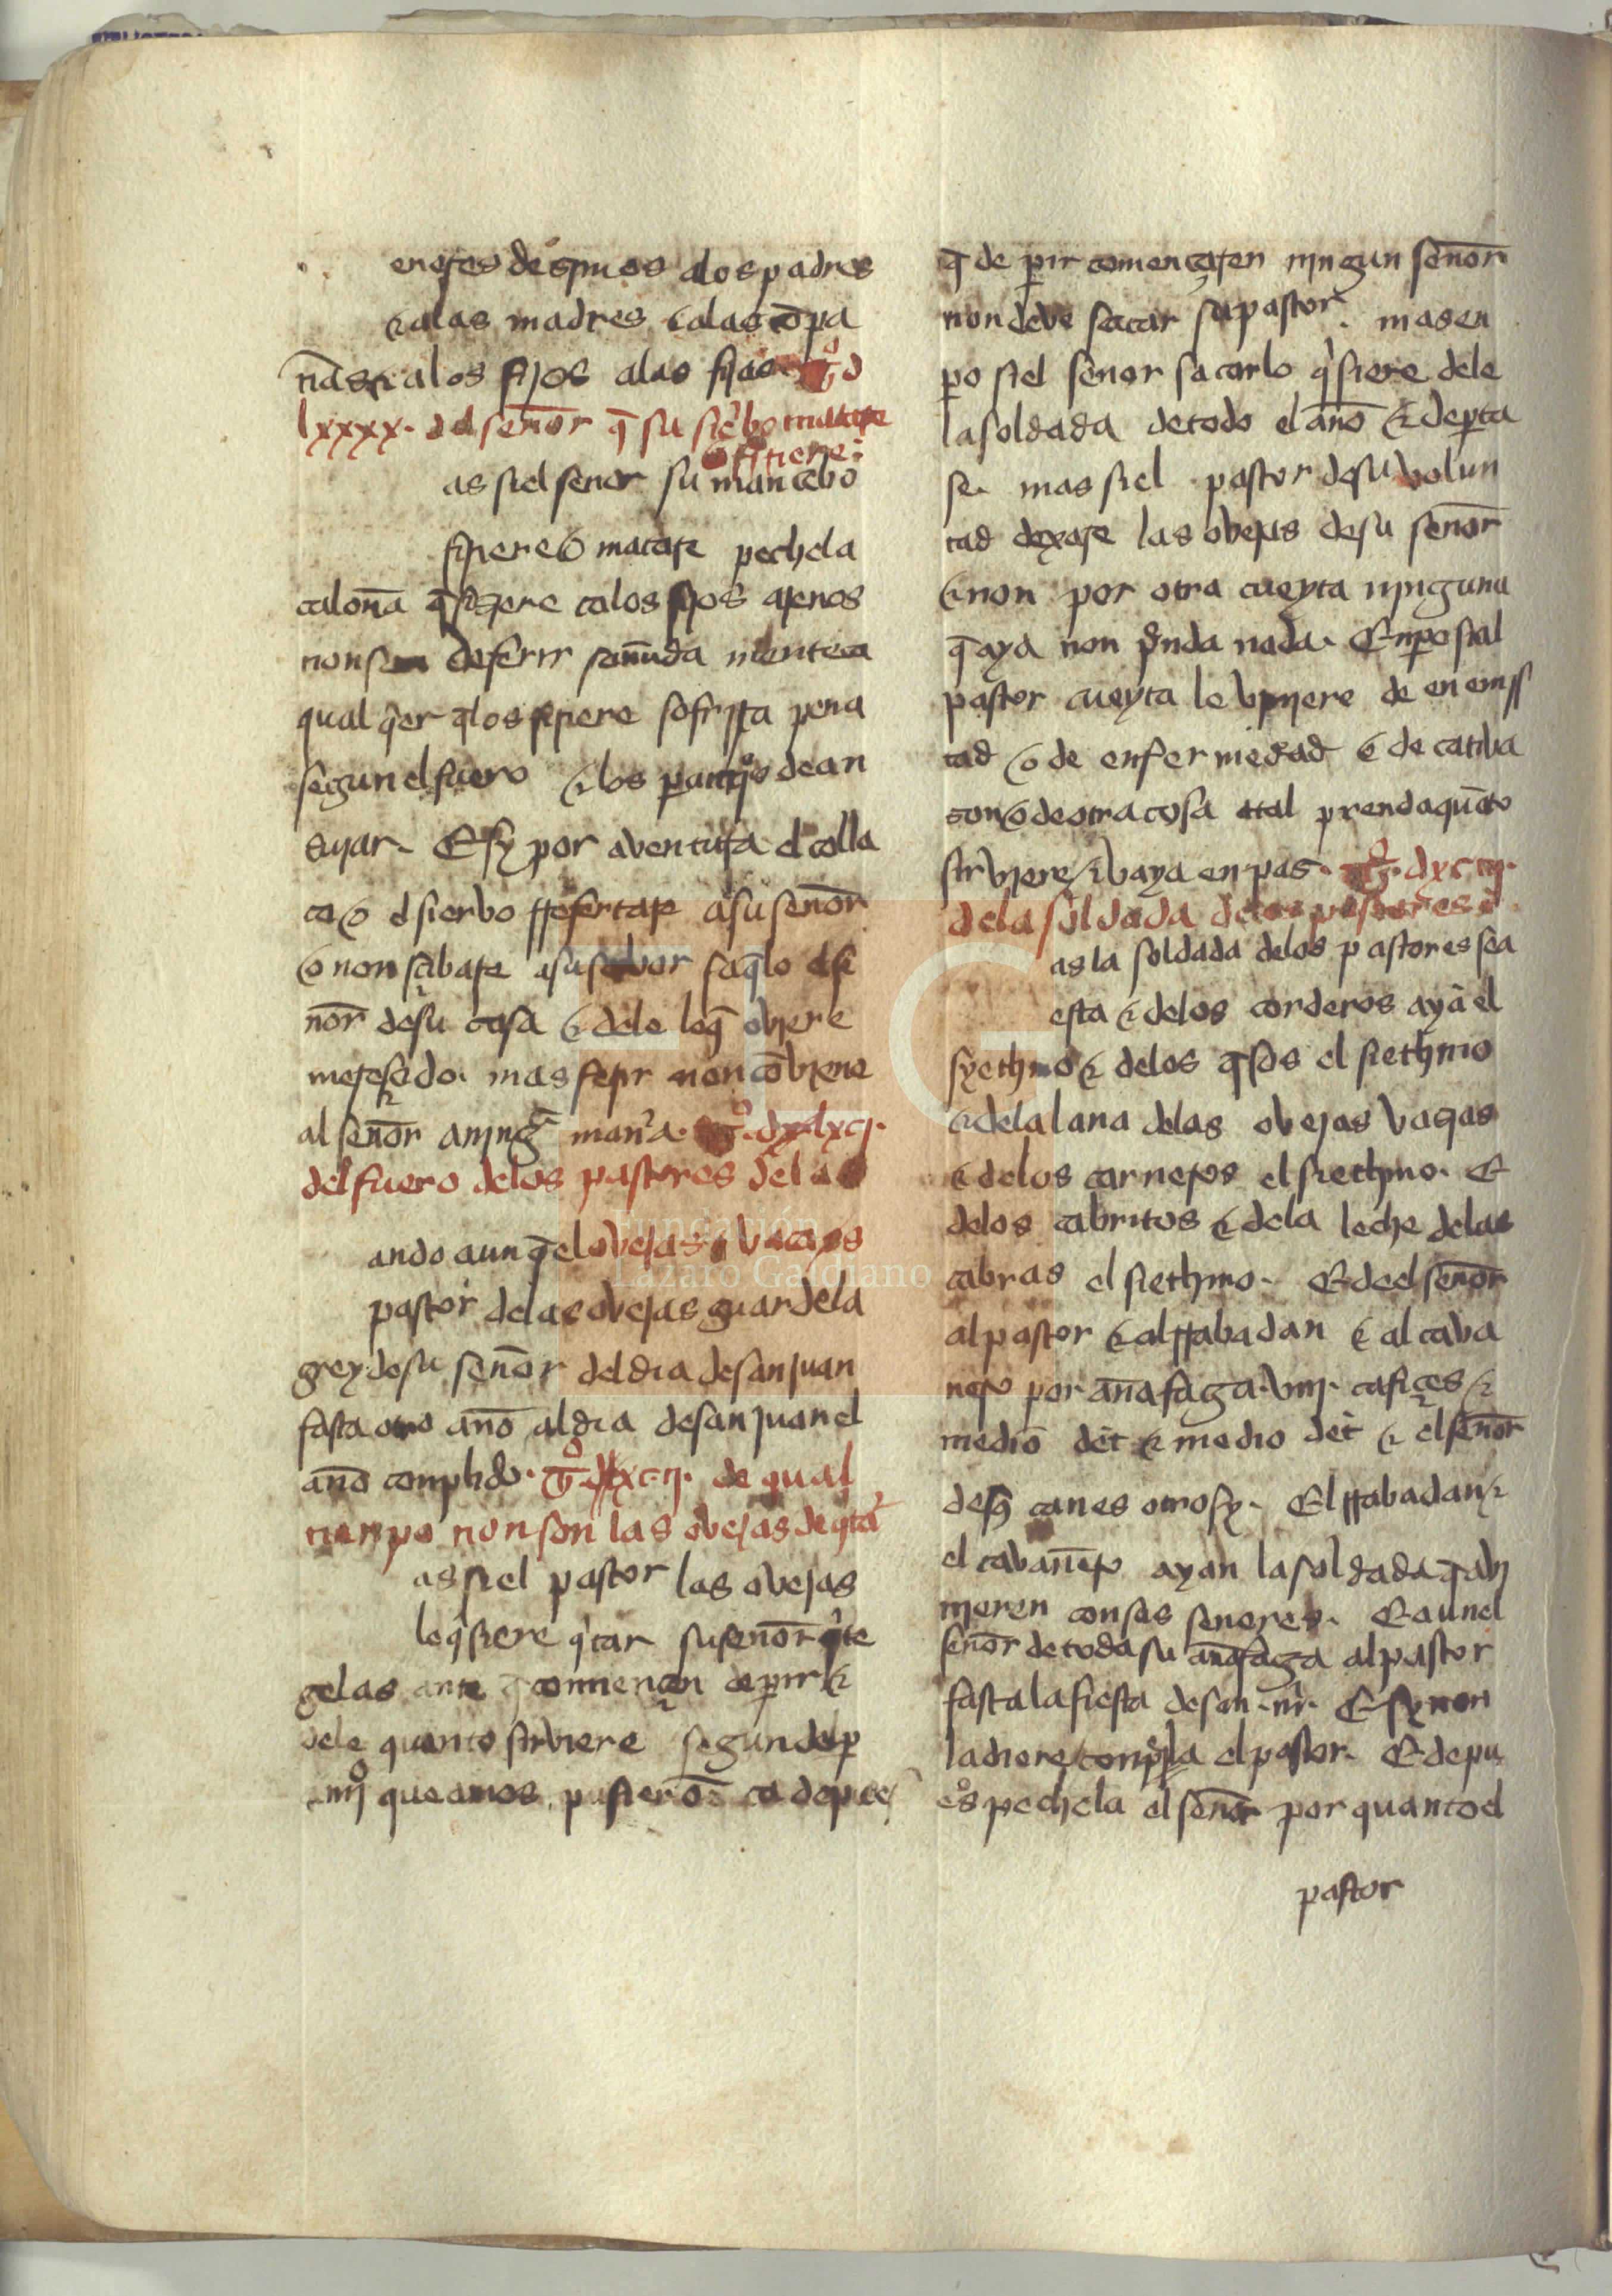 eneſes despues alos padres
⁊ alas madres ⁊ alas cōpa
ñas ⁊ alos fijos alas fijas. tº d
lxxxx. del señor q̄ su sieruo matare
o firiere:
as si el señor su mançebo
firiere o matare pechela
caloña q̄ fiziere alos fijos agenos
non son de ferir sañuda mente ca
qual q̄er q̄ los firiere sofrira pena
segun el fuero ⁊ los
suyar. E sy por aventura el colla
ço o el sierbo rrefertare a su señor
o non acabare su labor saq̄lo el se
ñor de su casa ⁊ dele loq̄ oviere
mereſçido. mas ferir non cōbiene
al señor a ninḡ man̄a. tº. dxlxcj.
del fuero delos pastores dela
ando aun q̄ el ovejas ⁊ vacas
pastor delas ovejas guardela
grey de su señor del dia de san juan
fasta otro año al dia de san juan el
año complido. tº. dxcij. de qual
tienpo non son las ovejas de q̄tar
as si el pastor las ovejas
le q̇siere q̇tar su señor q̇te
gelas ante q̄ comiençen de parir ⁊
dele quanto serviere segun del
que amos pusierō: ca depues
q̄ de parir comēçaren ningun señor
non deve sacar su pastor. mas en
pero si el señor sacarlo q̇siere dele
la soldada de todo el año ⁊ de parta
se. mas si el pastor de su volun
tad dexare las ovejas de su señor
⁊ non por otra cueyta ninguna
q̄ aya non prenda nada. Enpero si al
pastor cueyta le viniere de enemis
tad o de enfermedad o de catiba
con o de otra cosa atal prenda quāto
serviere ⁊ vaya en pas. tº. dxciij.
dela soldada delos pastores
as la soldada delos pastores sea
esta ⁊ delos corderos aya el
syethmo ⁊ delos q̄sos el siethmo
⁊ dela lana delas ovejas vaçias
⁊ delos carneros el siethmo. E
delos cabritos ⁊ dela leche delas
cabras el siethmo. E de el señor
al pastor ⁊ al rrabadan ⁊ al caba
ñero por añafaga. viij. cafiçes ⁊
medio det ⁊ medio det ⁊ el señor
de sq̄ canes otrosy. El rrabadan ⁊
el cabañero ayan la soldada q̄ abi
nieren con sus señores. E aun el
señor de toda su añafaga al pastor
fasta la fiesta de san. mr̄. E sy non
la diere conpla el pastor. E depu
eºs pechela el señor por quanto el
pastor